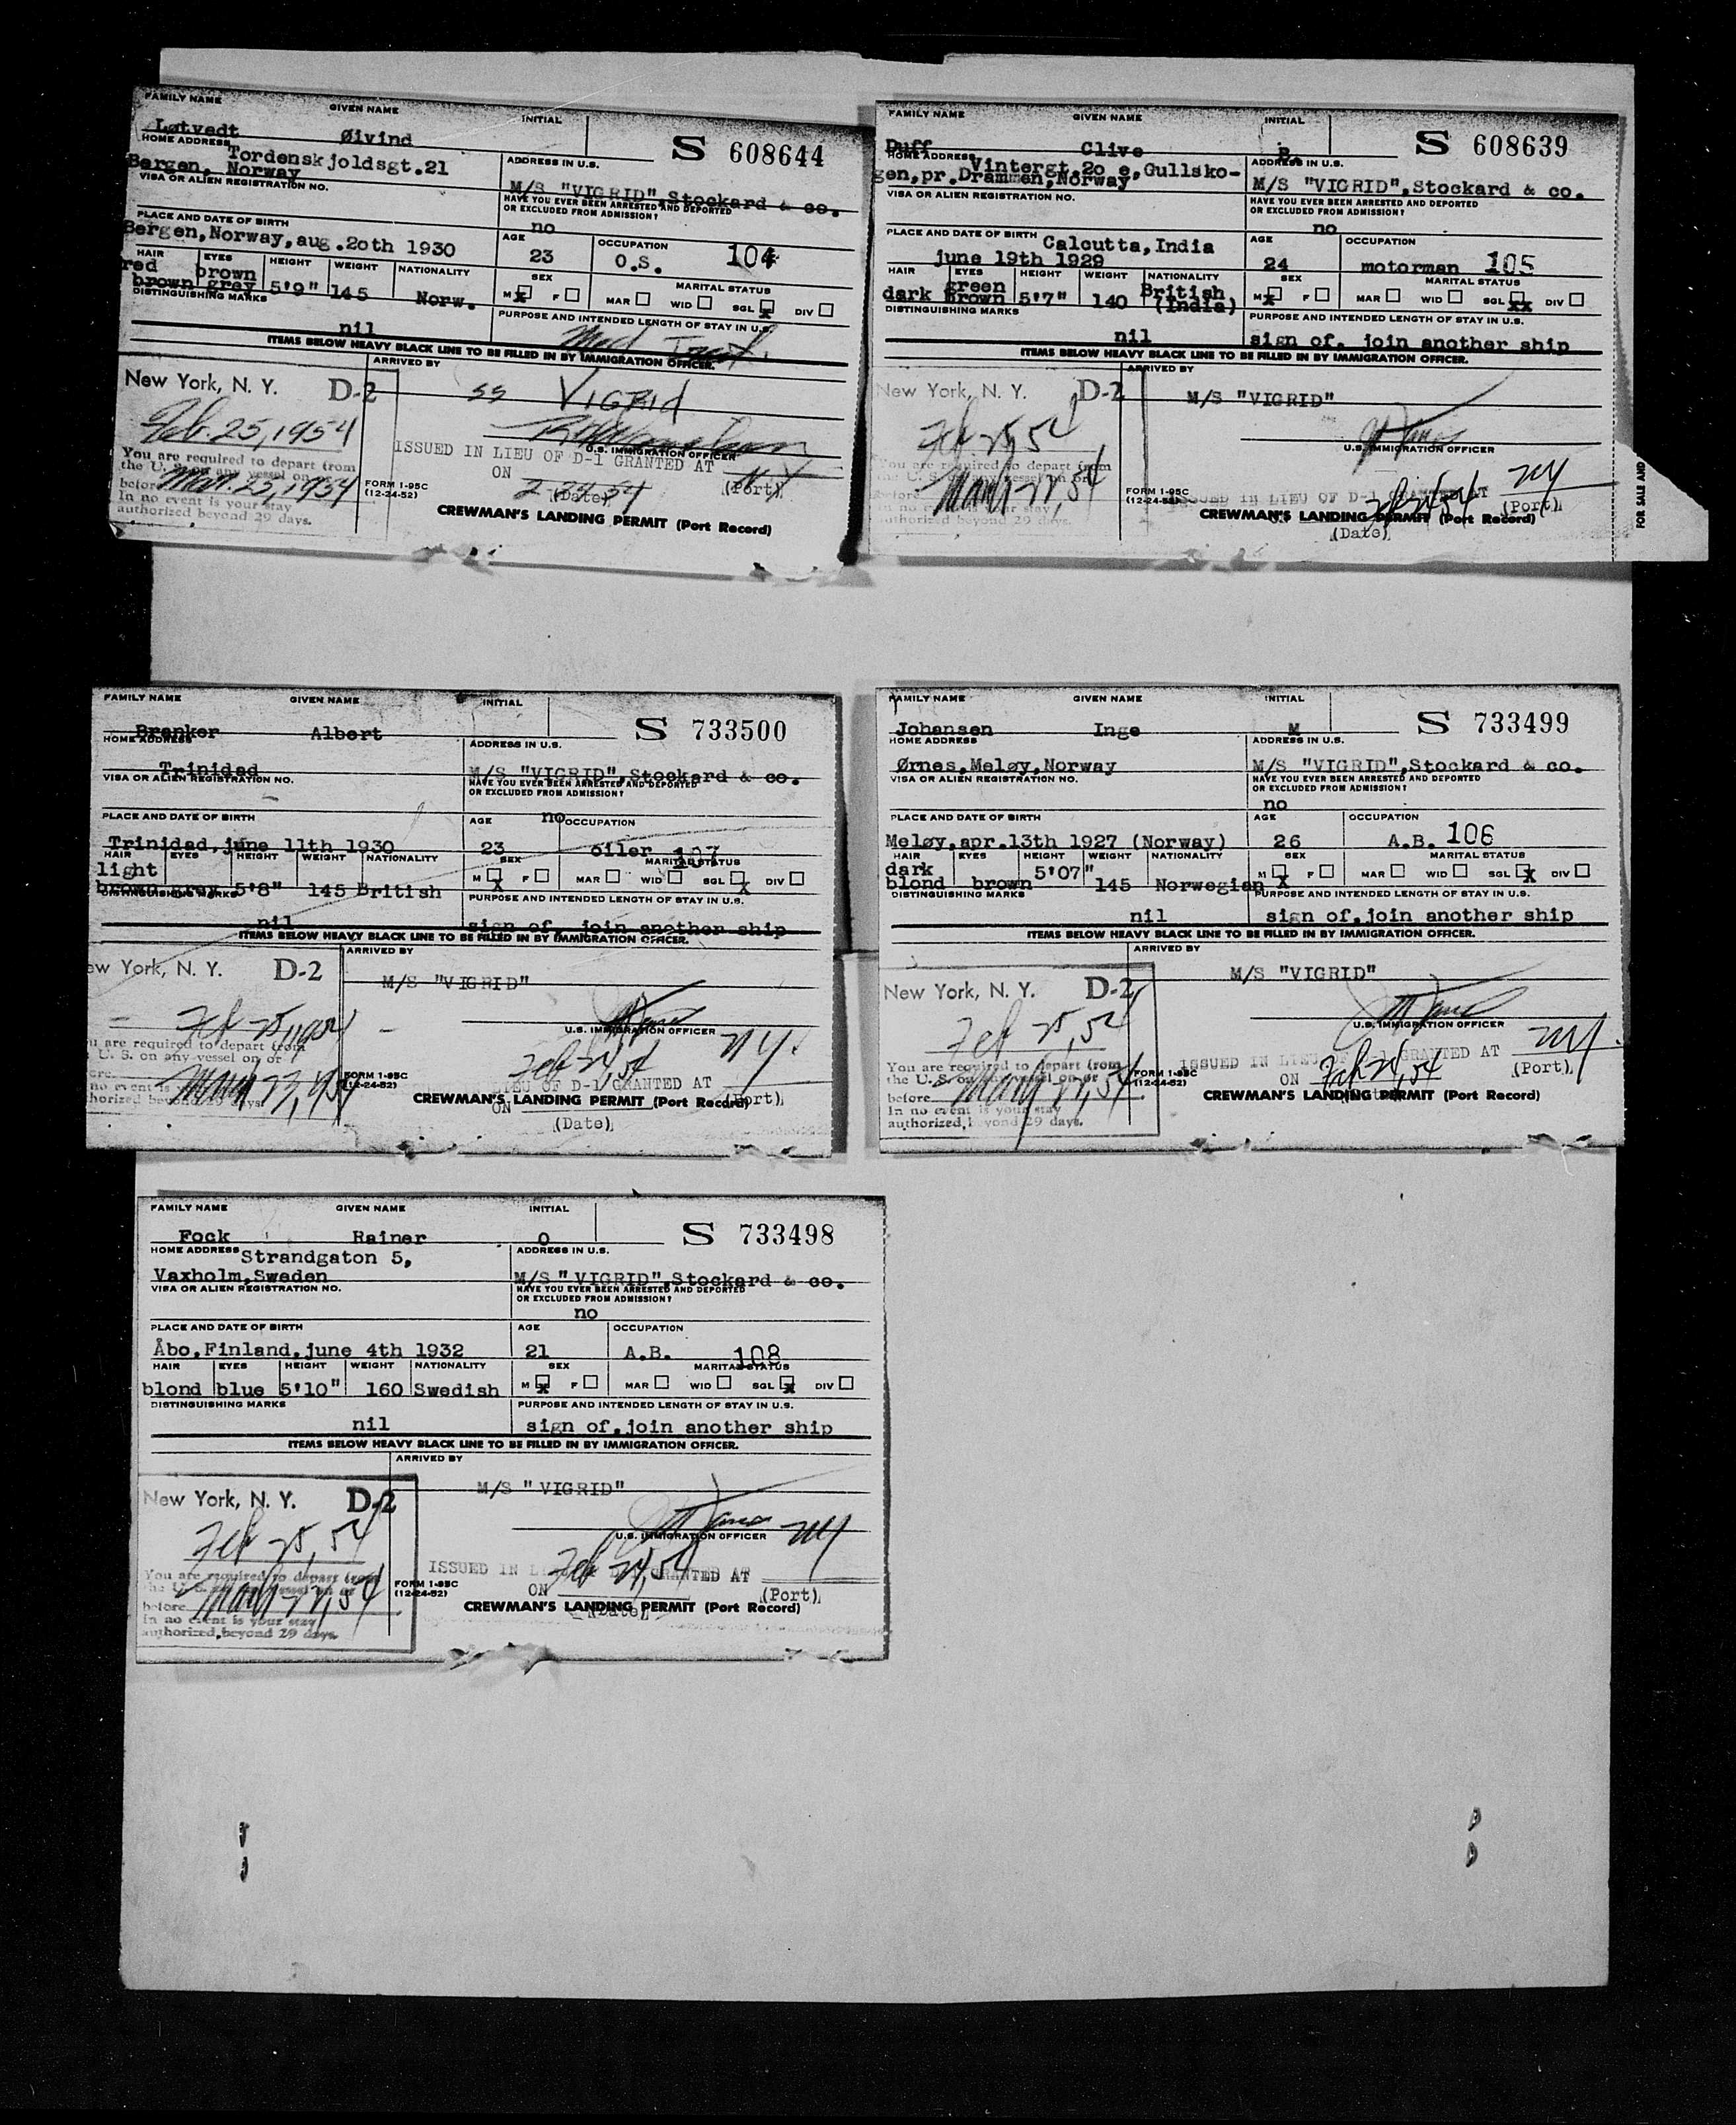 FAMILY NAME GIVEN NAME INITIAL
Løtvedt Øivind S 608644
HOME ADDRESS Tordenskjoldsgt.21 ADDRESS IN U.S.
Bergen, Norway M/S "VIGRID",Stockard & co.
VISA OR ALIEN REGISTRATION NO. HAVE YOU EVER BEEN ARRESTED AND DEPORTED
OR EXCLUDED FROM ADMISSION?
no
PLACE AND DATE OF BIRTH AGE OCCUPATION
Bergen,Norway,aug.2oth 1930 23 O.S. 104
HAIR EYES HEIGHT WEIGHT NATIONALITY SEX MARITAL STATUS
red brown
brown grey 5'9" 145 Norw. M x F MAR WID SGL x DIV
DISTINGUISHING MARKS PURPOSE AND INTENDED LENGTH OF STAY IN U.S.
nil Med Treat.
ITEMS BELOW HEAVY BLACK LINE TO BE FILLED IN BY IMMIGRATION OFFICER.
ARRIVED BY
New York, N. Y. D-2 ss VIGRID
Feb. 25, 1954
U.S. IMMIGRATION OFFICER
You are required to depart from
the U. S. on any vessel on or
before Mar. 25, 1954
In no event is your stay
authorized beyond 29 days.
ISSUED IN LIEU OF D-1 GRANTED AT N Y
ON 2 24 54 (Port)
(Date)
FORM 1-95C
(12-24-52)
CREWMAN'S LANDING PERMIT (Port Record)
FAMILY NAME GIVEN NAME INITIAL
Duff Clive B. S 608639
HOME ADDRESS Vintergt.2o e,Gullsko- ADDRESS IN U.S.
gen,pr.Drammen,Norway M/S "VIGRID",Stockard & co.
VISA OR ALIEN REGISTRATION NO. HAVE YOU EVER BEEN ARRESTED AND DEPORTED
OR EXCLUDED FROM ADMISSION?
no
PLACE AND DATE OF BIRTH Calcutta,India AGE OCCUPATION
june 19th 1929 24 motorman 105
HAIR EYES HEIGHT WEIGHT NATIONALITY SEX MARITAL STATUS
green British
dark brown 5'7" 140 (India) M x F MAR WID SGL xx DIV
DISTINGUISHING MARKS PURPOSE AND INTENDED LENGTH OF STAY IN U.S.
nil sign of. join another ship
ITEMS BELOW HEAVY BLACK LINE TO BE FILLED IN BY IMMIGRATION OFFICER.
ARRIVED BY
New York, N. Y. D-2 M/S "VIGRID"
Feb 25, 54
U.S. IMMIGRATION OFFICER
You are required to depart from
the U. S. on any vessel on or
before
In no event is your stay
authorized beyond 29 days.
FORM 1-95C
(12-24-52)
ISSUED IN LIEU OF D-1 GRANTED AT NY
Feb 24 54 (Port)
CREWMAN'S LANDING PERMIT (Port Record)
(Date)
FOR SALE AND
FAMILY NAME GIVEN NAME INITIAL
Branker Albert S 733500
HOME ADDRESS ADDRESS IN U.S.
Trinidad M/S "VIGRID",Stockard & co.
VISA OR ALIEN REGISTRATION NO. HAVE YOU EVER BEEN ARRESTED AND DEPORTED
OR EXCLUDED FROM ADMISSION?
no
PLACE AND DATE OF BIRTH AGE OCCUPATION
Trinidad,june 11th 1930 23 oiler 107
HAIR EYES HEIGHT WEIGHT NATIONALITY SEX MARITAL STATUS
light
brown grey 5'8" 145 British M x F MAR WID SGL x DIV
DISTINGUISHING MARKS PURPOSE AND INTENDED LENGTH OF STAY IN U.S.
nil sign of. join another ship
ITEMS BELOW HEAVY BLACK LINE TO BE FILLED IN BY IMMIGRATION OFFICER.
ARRIVED BY
ew York, N. Y. D-2 M/S "VIGRID"
Feb 25, 1954
U.S. IMMIGRATION OFFICER
u are required to depart from
U. S. on any vessel on or
ore
no event is your stay
horized beyond 29 days.
FORM 1-95C
(12-24-52)
Feb 24, 54 NY.
LIEU OF D-1 GRANTED AT
CREWMAN'S LANDING PERMIT (Port Record)
ON (Port)
(Date)
FAMILY NAME GIVEN NAME INITIAL
Johansen Inge M S 733499
HOME ADDRESS ADDRESS IN U.S.
Ørnes,Meløy,Norway M/S "VIGRID",Stockard & co.
VISA OR ALIEN REGISTRATION NO. HAVE YOU EVER BEEN ARRESTED AND DEPORTED
OR EXCLUDED FROM ADMISSION?
no
PLACE AND DATE OF BIRTH AGE OCCUPATION
Meløy,apr.13th 1927 (Norway) 26 A.B. 106
HAIR EYES HEIGHT WEIGHT NATIONALITY SEX MARITAL STATUS
dark 5'07"
blond brown 145 Norwegian M x F MAR WID SGL x DIV
DISTINGUISHING MARKS PURPOSE AND INTENDED LENGTH OF STAY IN U.S.
nil sign of.join another ship
ITEMS BELOW HEAVY BLACK LINE TO BE FILLED IN BY IMMIGRATION OFFICER.
ARRIVED BY
New York, N. Y. D-2 M/S "VIGRID"
Feb 25, 54
U.S. IMMIGRATION OFFICER
You are required to depart from
the U. S. on any vessel on or
before
In no event is your stay
authorized beyond 29 days.
FORM 1-95C
(12-24-52)
ISSUED IN LIEU OF D-1 GRANTED AT NY.
ON Feb 24, 54 (Port)
CREWMAN'S LANDING PERMIT (Port Record)
FAMILY NAME GIVEN NAME INITIAL
Fock Rainer O S 733498
HOME ADDRESS Strandgaton 5, ADDRESS IN U.S.
Vaxholm,Sweden M/S "VIGRID",Stockard & co.
VISA OR ALIEN REGISTRATION NO. HAVE YOU EVER BEEN ARRESTED AND DEPORTED
OR EXCLUDED FROM ADMISSION?
no
PLACE AND DATE OF BIRTH AGE OCCUPATION
Åbo,Finland,june 4th 1932 21 A.B. 108
HAIR EYES HEIGHT WEIGHT NATIONALITY SEX MARITAL STATUS
blond blue 5'10" 160 Swedish M x F MAR WID SGL x DIV
DISTINGUISHING MARKS PURPOSE AND INTENDED LENGTH OF STAY IN U.S.
nil sign of.join another ship
ITEMS BELOW HEAVY BLACK LINE TO BE FILLED IN BY IMMIGRATION OFFICER.
ARRIVED BY
New York, N. Y. D-2 M/S "VIGRID"
Feb 25, 54
U.S. IMMIGRATION OFFICER NY
You are required to depart from
the U. S. on any vessel on or
before
In no event is your stay
authorized beyond 29 days.
FORM 1-95C
(12-24-52)
ISSUED IN GRANTED AT
ON Feb 24, 54 (Port)
CREWMAN'S LANDING PERMIT (Port Record)
(Date)